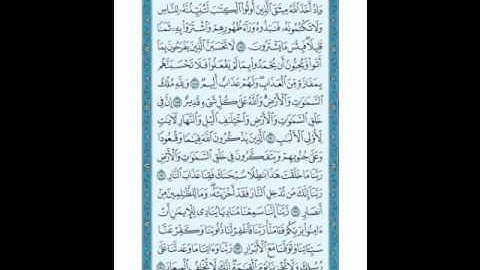 وَإِذْ أَخَذَ ٱللَّهُ مِيثَٰقَ ٱلَّذِينَ أُوتُوا۟ ٱلْكِتَٰبَ لَتُبَيِّنُنَّهُۥ لِلنَّاسِ
وَلَا تَكْتُمُونَهُۥ فَنَبَذُوهُ وَرَآءَ ظُهُورِهِمْ وَٱشْتَرَوْا۟ بِهِۦ ثَمَنًا
قَلِيلًا ۖ فَبِئْسَ مَا يَشْتَرُونَ ۝ لَا تَحْسَبَنَّ ٱلَّذِينَ يَفْرَحُونَ بِمَآ
أَتَوا۟ وَّيُحِبُّونَ أَن يُحْمَدُوا۟ بِمَا لَمْ يَفْعَلُوا۟ فَلَا تَحْسَبَنَّهُم
بِمَفَازَةٍ مِّنَ ٱلْعَذَابِ ۖ وَلَهُمْ عَذَابٌ أَلِيمٌ ۝ وَلِلَّهِ مُلْكُ
ٱلسَّمَٰوَٰتِ وَٱلْأَرْضِ ۗ وَٱللَّهُ عَلَىٰ كُلِّ شَىْءٍ قَدِيرٌ ۝ إِنَّ فِى
خَلْقِ ٱلسَّمَٰوَٰتِ وَٱلْأَرْضِ وَٱخْتِلَٰفِ ٱلَّيْلِ وَٱلنَّهَارِ لَءَايَٰتٍ
لِّأُو۟لِى ٱلْأَلْبَٰبِ ۝ ٱلَّذِينَ يَذْكُرُونَ ٱللَّهَ قِيَٰمًا وَقُعُودًا
وَعَلَىٰ جُنُوبِهِمْ وَيَتَفَكَّرُونَ فِى خَلْقِ ٱلسَّمَٰوَٰتِ وَٱلْأَرْضِ
رَبَّنَا مَا خَلَقْتَ هَٰذَا بَٰطِلًا سُبْحَٰنَكَ فَقِنَا عَذَابَ ٱلنَّارِ ۝
رَبَّنَآ إِنَّكَ مَن تُدْخِلِ ٱلنَّارَ فَقَدْ أَخْزَيْتَهُۥ ۖ وَمَا لِلظَّٰلِمِينَ مِنْ
أَنصَارٍ ۝ رَّبَّنَآ إِنَّنَا سَمِعْنَا مُنَادِيًا يُنَادِى لِلْإِيمَٰنِ أَنْ
ءَامِنُوا۟ بِرَبِّكُمْ فَـَٔامَنَّا ۚ رَبَّنَا فَٱغْفِرْ لَنَا ذُنُوبَنَا وَكَفِّرْ عَنَّا
سَيِّـَٔاتِنَا وَتَوَفَّنَا مَعَ ٱلْأَبْرَارِ ۝ رَبَّنَا وَءَاتِنَا مَا وَعَدتَّنَا عَلَىٰ
رُسُلِكَ وَلَا تُخْزِنَا يَوْمَ ٱلْقِيَٰمَةِ ۗ إِنَّكَ لَا تُخْلِفُ ٱلْمِيعَادَ ۝